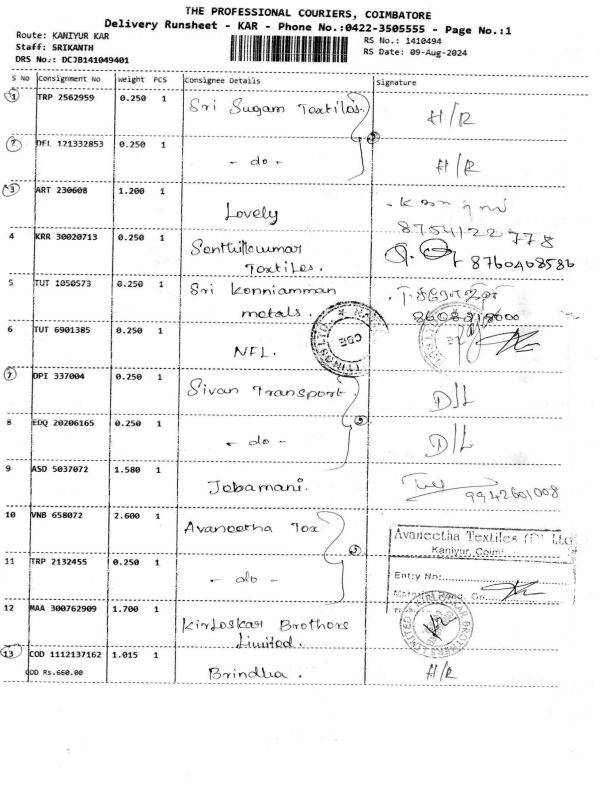 THE PROFESSIONAL COURIERS, COIMBATORE
Delivery Runsheet - KAR - Phone No.:0422-3505555 - Page No.:1
Route: KANIYUR KAR
Staff: SRIKANTH
DRS No.: DCJB141049401
RS No.: 1410494
RS Date: 09-Aug-2024
S No Consignment No Weight PCS Consignee Details Signature
1 TRP 2562959 0.250 1 Sri Sugam Textiles. H/R
2 DEL 121332853 0.250 1 - do - H/R
3 ART 230608 1.200 1 Lovely
8754122778
4 KRR 30020713 0.250 1 Senthilkumar
Textiles. 8760408586
5 TUT 1050573 0.250 1 Sri Konniamman
metals.
6 TUT 6901385 0.250 1 NFL.
CBE
7 DPI 337004 0.250 1 Sivan Transport. D/L
8 EDQ 20206165 0.250 1 - do - D/L
9 ASD 5037072 1.580 1 Jebamani. 9942601008
10 VNB 658072 2.600 1 Avaneetha Tex
Avaneetha Textiles (P) Ltd
Kaniyur, Coim
11 TRP 2132455 0.250 1 - do -
Entry No:
12 MAA 300762909 1.700 1 Kirloskar Brothers
Limited.
KIRLOSKAR BROTHERS LIMITED
13 COD 1112137162 1.015 1 Brindha. H/R
COD Rs.660.00